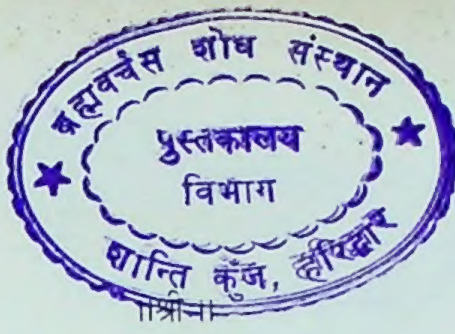 ब्रह्मवर्चस शोध संस्थान
पुस्तकालय
विभाग
शान्ति कुँज, हरिद्वार
॥श्री॥